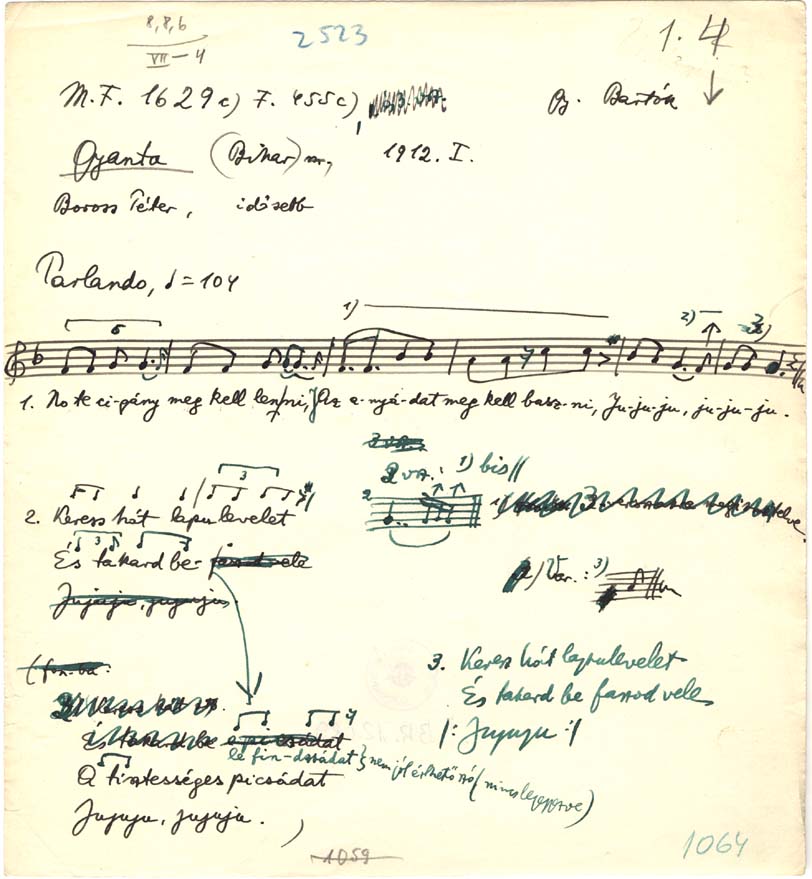 8, 8, 6
VII–4
2523
1. 4
M.F. 1629c) F. 455c),
Gy. Bartók
Gyanta (Bihar) m., 1912. I.
Boross Péter, idősebb
Parlando, ♩=104
1)
6
2)
3)
1. No te ci-gány meg kell lenni, Az a-nyá-dat meg kell basz-ni, Ju-ju-ju, ju-ju-ju.
2 va.: 1) bis
3
2. Keress hát lapulevelet
És takard be-
3
Var.: 3)
Jujuju, jujuju
(fon.-ba:
3. Keress hát lapulevelet
És takard be faszod vele
|: Jujuju :|
le fin-dzsádat } nem jól érthető szó (nincs lejegyezve)
A tisztességes picsádat
Jujuju, jujuju. )
1059
1064